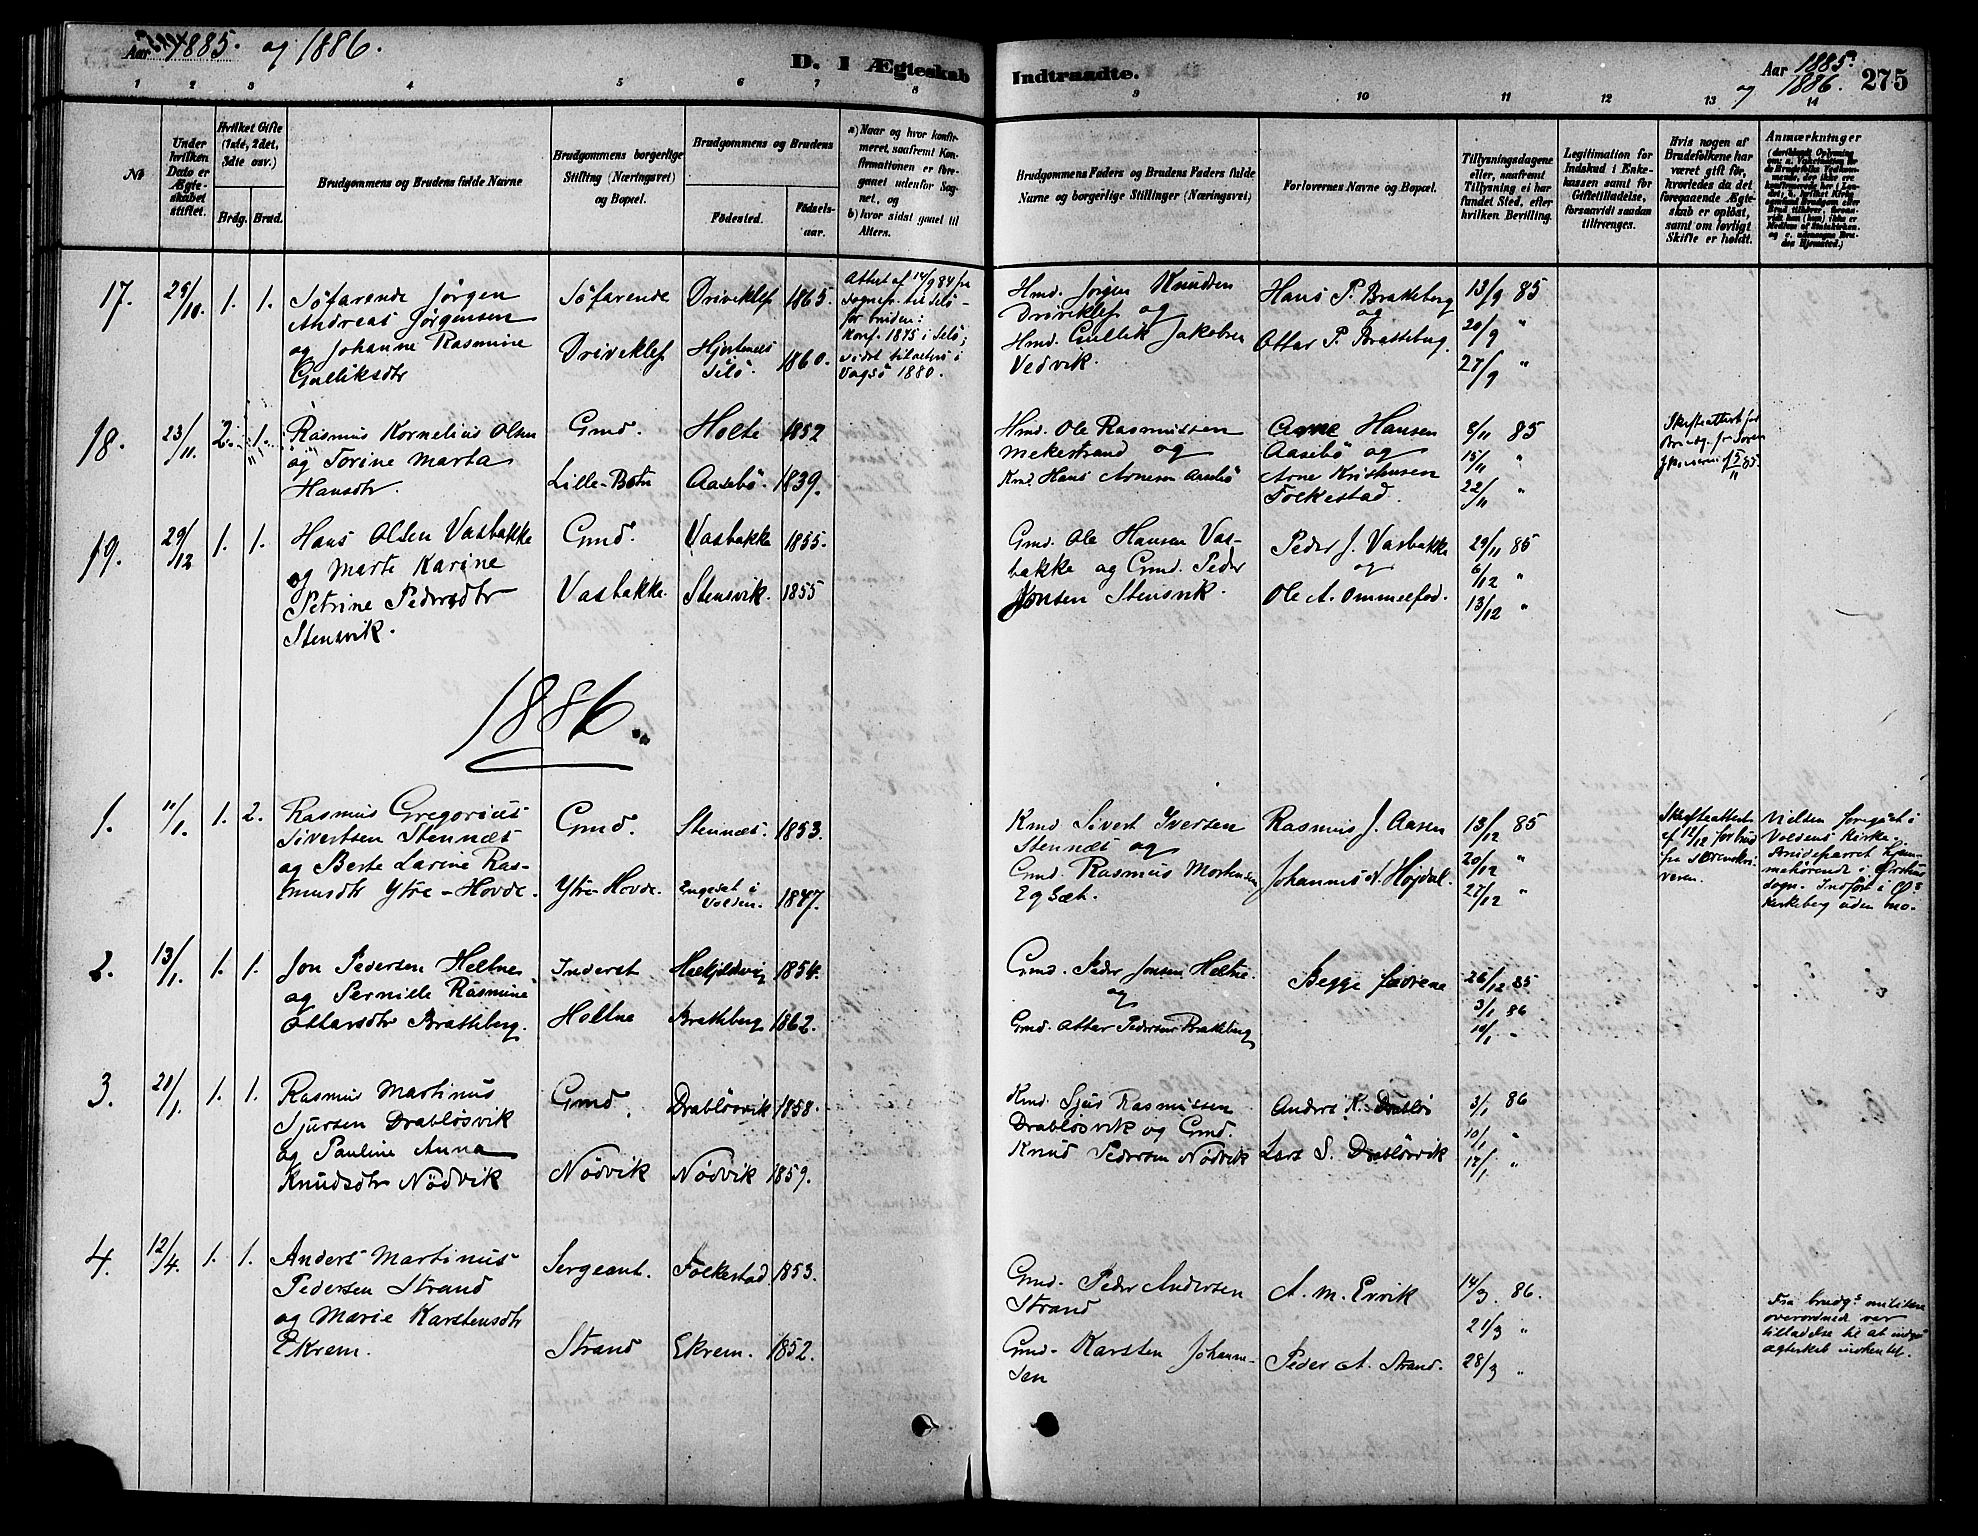 Aar 1885. og 1886.
D. I Ægteskab
Indtraadte.
Aar 1885.
og 1886.
275
1 2 3 4 5 6 7 8
9 10 11 12 13 14
No
Under hvilken Dato er Ægteskabet stiftet.
Hvilket Gifte (1ste, 2det, 3die osv.)
Brdg. Brud.
Brudgommens og Brudens fulde Navne
Brudgommens borgerlige Stilling (Næringsvei) og Bopæl.
Brudgommens og Brudens
Fødested.
Fødselsaar.
a) Naar og hvor konfirmeret, saafremt Konfirmationen er foregaaet udenfor Sognet, og
b) hvor sidst gaaet til Alters.
Brudgommens Faders og Brudens Faders fulde Navne og borgerlige Stillinger (Næringsvei)
Forlovernes Navne og Bopæl.
Tillysningsdagene eller, saafremt Tillysning ei har fundet Sted, efter hvilken Bevilling.
Legitimation for Indskud i Enkekassen samt for Giftetilladelse, forsaavidt saadan tiltrænges.
Hvis nogen af Brudefolkene har været gift før, hvorledes da det foregaaende Ægteskab er opløst, samt om lovligt Skifte er holdt.
Anmærkninger
17. 25/10. 1. 1. Söfarende Jörgen
Andreas Jørgensen
og Johanne Rasmine
Gulliksdtr
Söfarende
Driveklef
Driveklef 1865.
Hjertenes
Selö. 1860.
Attest af 14/9 84 fra
Sognepr. til Selö
for bruden:
Konf. 1875 i Selö;
sidst tilalters i
Vagsö 1880.
Hmd. Jørgen Knudsen
Driveklef og
Hmd. Gullik Jakobsen
Vedvik.
Hans P. Bratteberg
og
Ottar P. Bratteberg.
13/9 85
20/9 "
27/9 "
18. 23/11. 2. 1. Rasmus Kornelius Olsen
og Torine Marta
Hansdtr.
Gmd.
Lille-Botn
Holte 1852
Aasebö. 1839.
Hmd. Ole Rasmussen
Mekestrand og
Kmd. Hans Arnesen Aasebö
Arne Hansen
Aasebö og
Arne Kristensen
Folkestad.
8/11 85
15/11 "
22/11 "
Skifteattest for
Brudg. fr Soren
15/11 85.
19. 29/12 1. 1. Hans Olsen Vasbakke
og Marte Karine
Petrine Pedersdtr
Stensvik.
Gmd.
Vasbakke.
Vasbakke 1855.
Stensvik. 1855
Gmd. Ole Hansen Vasbakke
og Gmd. Peder
Jonsen Stensvik.
Peder J. Vasbakke
og
Ole A. Ommelfod.
29/11 85
6/12 "
13/12 "
1886.
1. 11/1. 1. 2. Rasmus Gregorius
Sivertsen Stennæs
og Berte Larine Rasmusdtr
Ytre-Hovde.
Gmd.
Ytre-Hovde.
Stennæs. 1853.
Engeset i
Volden. 1847.
Kmd Sivert Iversen
Stennæs og
Gmd. Rasmus Mortensen
Egsæt.
Rasmus J. Aasen
Johannes N. Højdal.
13/12 85
20/12 "
27/12 "
Skifteattest
af 12/12 for brud
fra Sorenskriveren.
Vielsen foregaaet i
Voldens Kirke.
Brudeparret hjemmehørende
i Ørstens
Sogn. Indført i Ø.s
Kirkebog uden no.
2. 13/1. 1. 1. Jon Pedersen Heltne
og Pernille Rasmine
Ottarsdtr Bratteberg.
Inderst
Heltne
Helkjeldsvig 1854.
Bratteberg 1862.
Gmd. Peder Jonsen Heltne
og
Gmd. Ottar Pedersen Bratteberg
Begge fædrene
26/12 85
3/1 86
10/1 "
3. 21/1. 1. 1. Rasmus Martinus
Sjursen Drabløsvik
og Pauline Anna
Knudsdtr Nödvik
Gmd.
Nödvik
Drabløsvik 1858.
Nödvik 1859.
Kmd. Sjur Rasmussen
Drabløsvik og Gmd.
Knud Pedersen Nödvik
Anders K. Drabløs
Lars S. Drabløsvik
3/1 86
10/1 "
17/1 "
4. 12/4. 1. 1. Anders Martinus
Pedersen Strand
og Marie Karstensdtr
Ekrem.
Sergeant.
Strand
Folkestad 1853.
Ekrem. 1852.
Gmd. Peder Andersen
Strand
Gmd. Karsten Johannesen
A. M. Ervik
Peder A. Strand.
14/3 86.
21/3 "
28/3 "
Fra brudg.s militære
overordnede var
tilladelse til at indgaa
ægteskab indhentet.